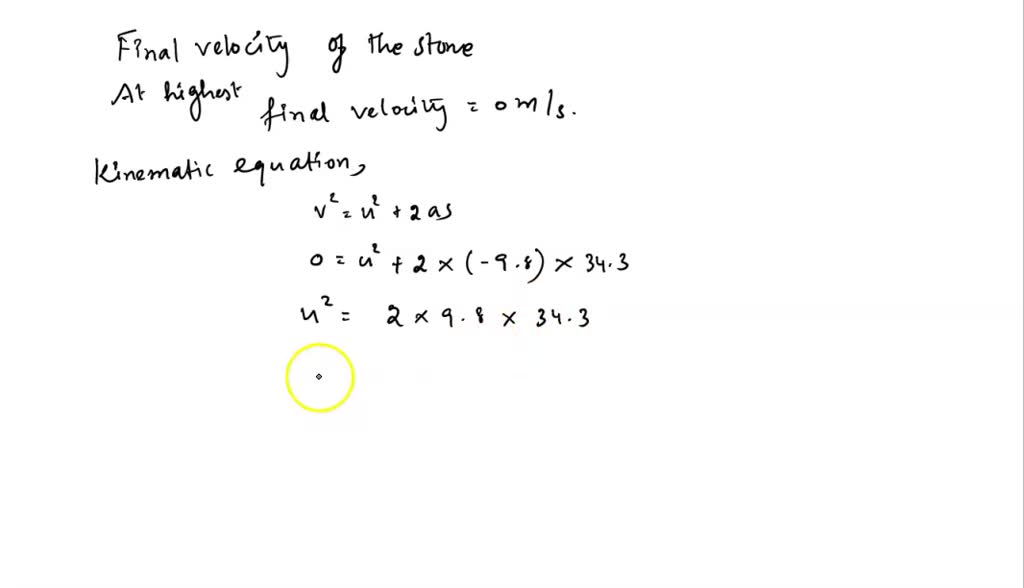 Final velocity of the stone
At highest final velocity = 0 m/s.
Kinematic equation,
v² = u² + 2as
0 = u² + 2 × (-9.8) × 34.3
u² = 2 × 9.8 × 34.3